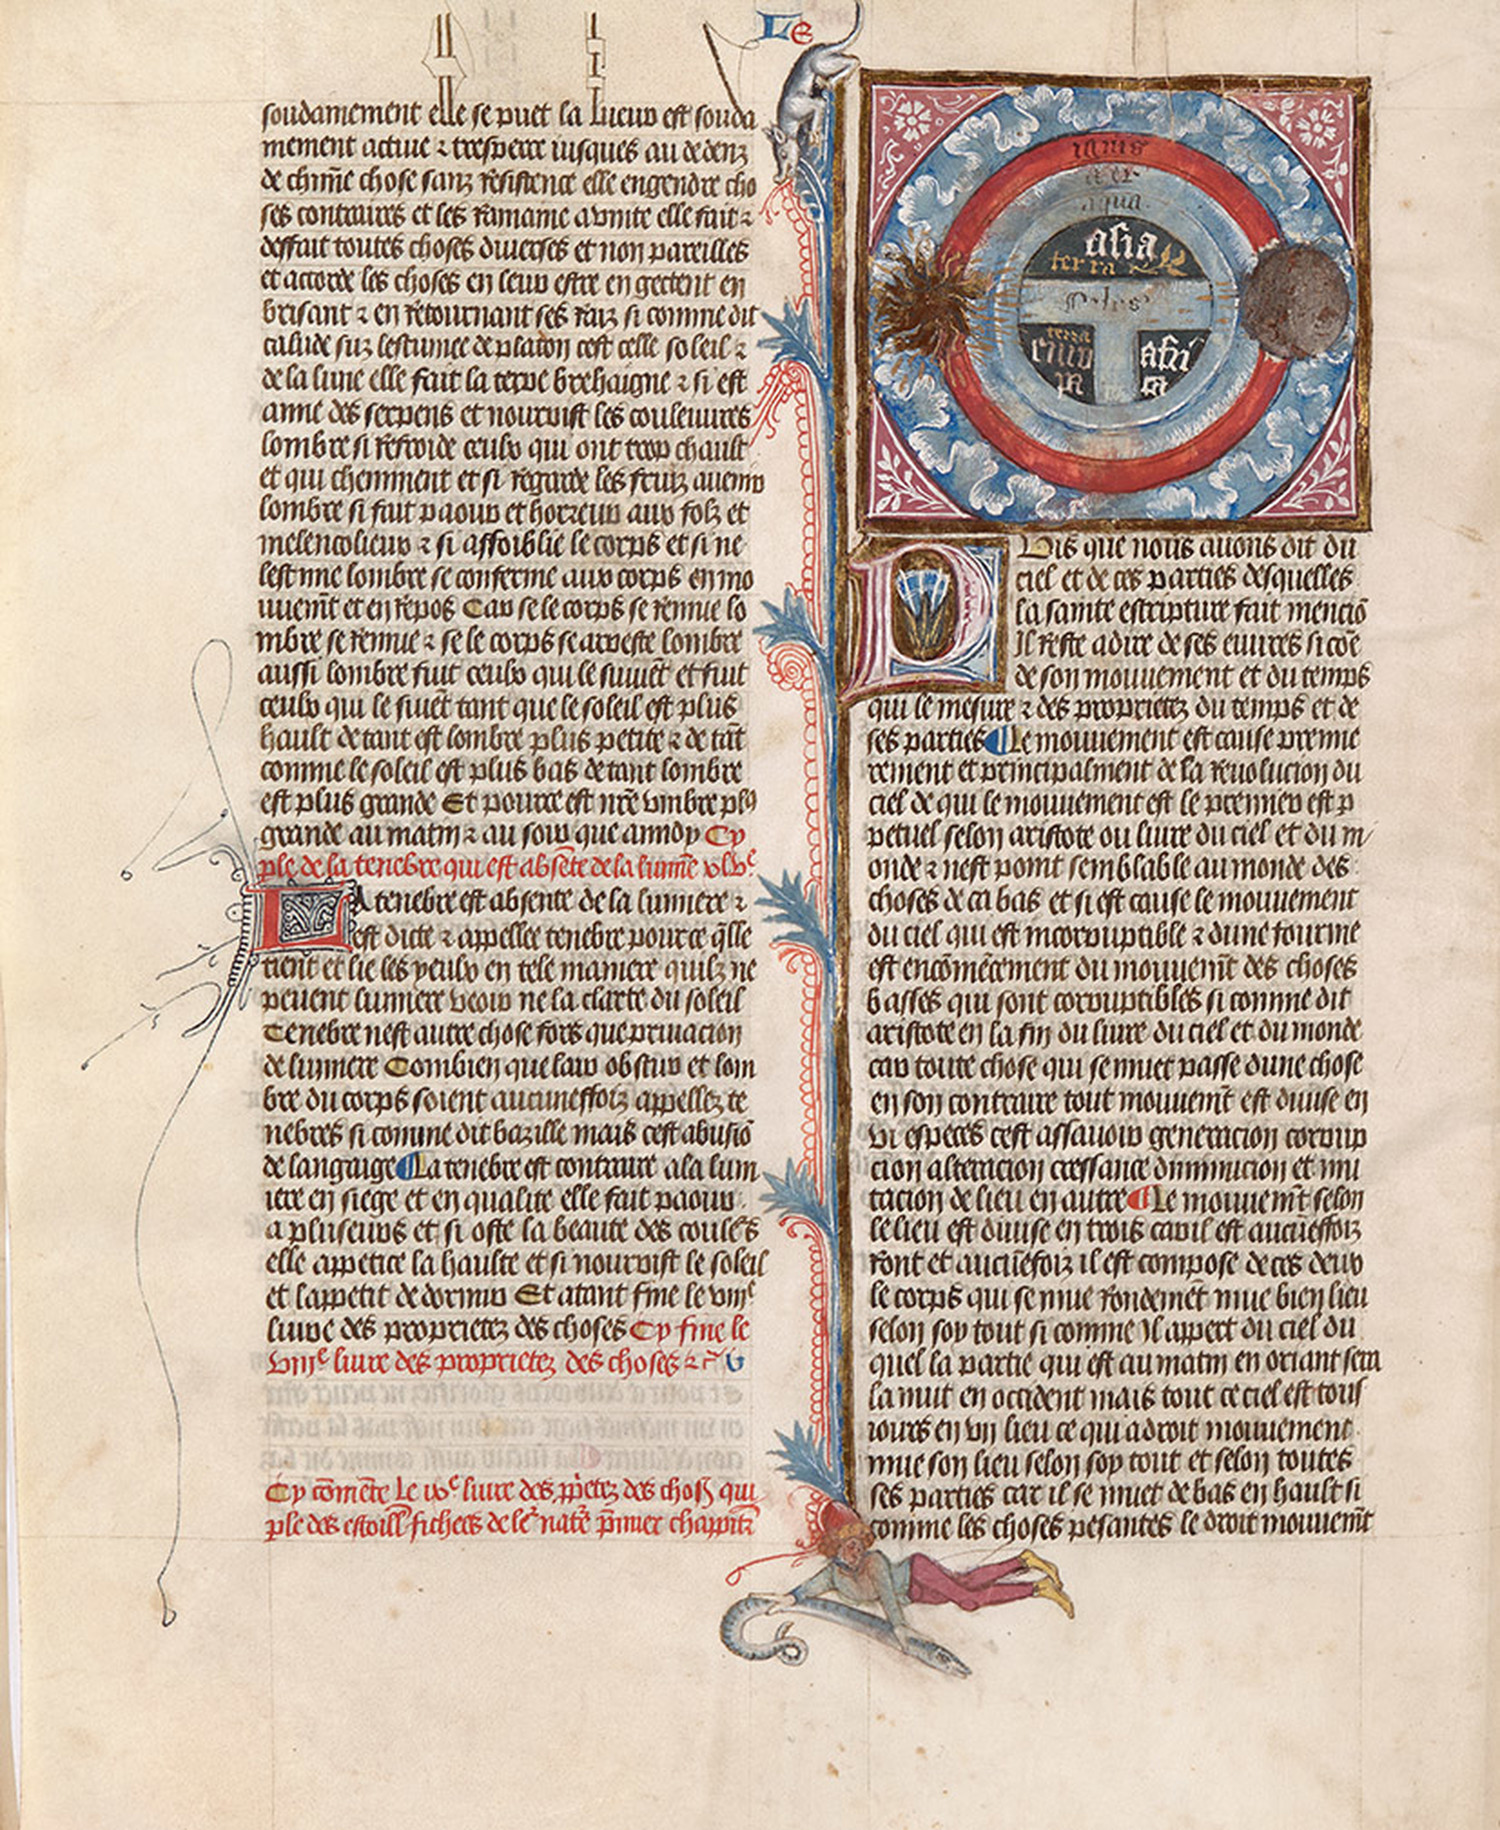 Le
soudainement elle se puet la lueur est souda
inement active ⁊ tresperce iusques au dedenz
de chūne chose sanz resistence elle engendre cho
ses contraires et les ramaine a vnite elle fait ⁊
deffait toutes choses diverses et non pareilles
et acorde les choses en leur estre en gectent en
brisant ⁊ en retournant ses raiz si comme dit
calcide suz lestimee de platon cest celle soleil ⁊
de la lune elle fait la terre brehaigne ⁊ si est
amie des serpens et nourrist les couleuures
lombre si refroide ceulx qui ont trop chault
et qui cheminent et si regarde les feulz auenir
lombre si fait paour et horreur aux folz et
melencolieux ⁊ si affoiblie le corps et si ne
lestime lombre se conferme aux corps en mo
uuemēt et en repos Car se le corps se remue lo
mbre se remue ⁊ se le corps se arreste lombre
aussi lombre fuit ceulx qui le suiuēt et suit
ceulx qui le fuiēt tant que le soleil est plus
hault de tant est lombre plus petite ⁊ de tāt
comme le soleil est plus bas de tant lombre
est plus grande Et pource est nr̄e vmbre plꝰ
grande au matin ⁊ au soir que a midy Cy
ꝑle de la tenebre qui est absēte de la lumiē xlvᵉ
LA tenebre est absente de la lumiere ⁊
est dicte ⁊ appellee tenebre pource q̄lle
tient et lie les yeulx en tele maniere quilz ne
peuent lumiere veoir ne la clarte du soleil
Tenebre nest autre chose fors que priuacion
de lumiere Combien que lair obscur et lom
bre du corps soient aucuneffoiz appellez te
nebres si comme dit bazille mais cest abusiō
de langaige La tenebre est contraire a la lum
iere en siege et en qualite elle fait paour
a pluseurs et si oste la beaute des coulers
elle appetice la haulte et si nourrist le soleil
et lappetit de dormir Et atant fine le viiiᵉ
liure des proprietez des choses Cy fine le
viiiᵉ liure des proprietez des choses ⁊ c̄
Cy cōmēce le ixᵉ liure des ꝓp̄etez des chos̄ qui
ꝑle des estoill̄ fichees de leʳ natr̄e p̄mier chappitʳ
ignis
aer
aqua
asia
terra
terra
europa
africa
PUis que nous auons dit du
ciel et de ces parties desquelles
la sainte escripture fait menciō
Il reste a dire de ses euures si cōe
de son mouuement et du temps
qui le mesure ⁊ des proprietez du temps et de
ses parties Le mouuement est cause premie
rement et principalment de la reuolucion du
ciel de qui le mouuement est le premier est ꝑ
petuel selon aristote ou liure du ciel et du m
onde ⁊ nest point semblable au monde des
choses de ca bas et si est cause le mouuement
du ciel qui est incorruptible ⁊ dune fourme
est encōmēcement du mouuemt̄ des choses
basses qui sont corruptibles si comme dit
aristote en la fin du liure du ciel et du monde
car toute chose qui se muet passe dune chose
en son contraire tout mouuemt̄ est diuise en
vi especes cest assauoir generacion corrup
cion alteracion cressance diminucion et mu
tacion de lieu en autre Le mouuemt̄ selon
le lieu est diuise en trois car il est aucueffoiz
ront et aucuēfoiz il est compose de ces deux
le corps qui se mue rondemēt mue bien lieu
selon soy tout si comme Il appert du ciel du
quel la partie qui est au matin en oriant sera
la nuit en occident mais tout ce ciel est tous
iours en vn lieu ce qui a droit mouuement
mue son lieu selon soy tout et selon toutes
ses parties car il se muet de bas en hault si
comme les choses pesantes le droit mouuemt̄